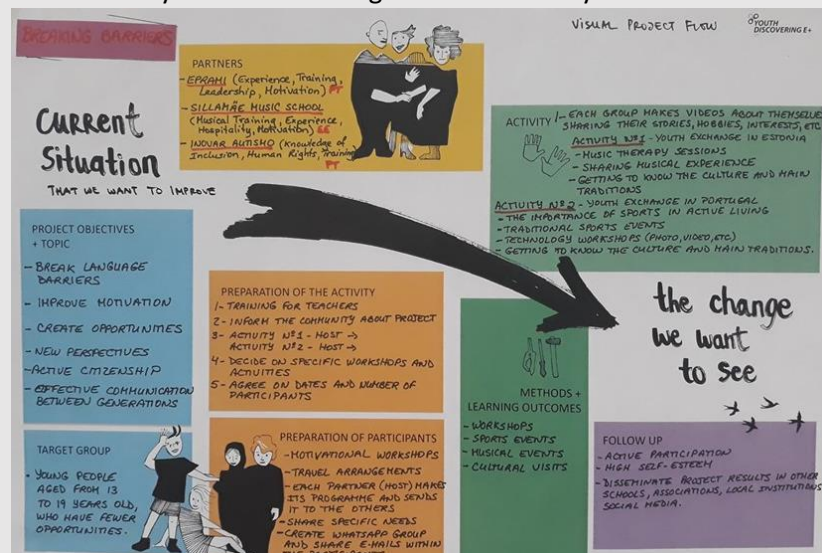 BREAKING BARRIERS
VISUAL PROJECT FLOW
YOUTH
DISCOVERING E+
CURRENT
Situation
THAT WE WANT TO IMPROVE
PARTNERS
- EPRAMI (Experience, Training,
Leadership, Motivation) PT
- SILLAMÄE MUSIC SCHOOL
(Musical Training, Experience,
Hospitality, Motivation)
- INOVAR AUTISMO (Knowledge of
Inclusion, Human Rights, Training)
PT
ACTIVITY /- EACH GROUP MAKES VIDEOS ABOUT THEMSELVES
SHARING THEIR STORIES, HOBBIES, INTERESTS, ETC
ACTIVITY Nº1 - YOUTH EXCHANGE IN ESTONIA
- MUSIC THERAPY SESSIONS
- SHARING MUSICAL EXPERIENCE
- GETTING TO KNOW THE CULTURE AND MAIN
TRADITIONS
ACTIVITY Nº2 - YOUTH EXCHANGE IN PORTUGAL
- THE IMPORTANCE OF SPORTS IN ACTIVE LIVING
- TRADITIONAL SPORTS EVENTS
- TECHNOLOGY WORKSHOPS (PHOTO, VIDEO, ETC)
- GETTING TO KNOW THE CULTURE AND MAIN TRADITIONS.
PROJECT OBJECTIVES
+ TOPIC
- BREAK LANGUAGE
BARRIERS
- IMPROVE MOTIVATION
- CREATE OPPORTUNITIES
- NEW PERSPECTIVES
- ACTIVE CITIZENSHIP
- EFFECTIVE COMMUNICATION
BETWEEN GENERATIONS
PREPARATION OF THE ACTIVITY
1- TRAINING FOR TEACHERS
2- INFORM THE COMMUNITY ABOUT PROJECT
3- ACTIVITY Nº1 - HOST →
ACTIVITY Nº2 - HOST →
4- DECIDE ON SPECIFIC WORKSHOPS AND
ACTIVITIES
5- AGREE ON DATES AND NUMBER OF
PARTICIPANTS
METHODS +
LEARNING OUTCOMES
- WORKSHOPS
- SPORTS EVENTS
- MUSICAL EVENTS
- CULTURAL VISITS
the change
we want
to see
TARGET GROUP
- YOUNG PEOPLE
AGED FROM 13
TO 19 YEARS OLD,
WHO HAVE FEWER
OPPORTUNITIES.
PREPARATION OF PARTICIPANTS
- MOTIVATIONAL WORKSHOPS
- TRAVEL ARRANGEMENTS
- EACH PARTNER (HOST) MAKES
ITS PROGRAMME AND SENDS
IT TO THE OTHERS
- SHARE SPECIFIC NEEDS
- CREATE WHATSAPP GROUP
AND SHARE E-MAILS WITHIN
FOLLOW UP
- ACTIVE PARTICIPATION
- HIGH SELF-ESTEEM
- DISSEMINATE PROJECT RESULTS IN OTHER
SCHOOLS, ASSOCIATIONS, LOCAL INSTITUTIONS
SOCIAL MEDIA.